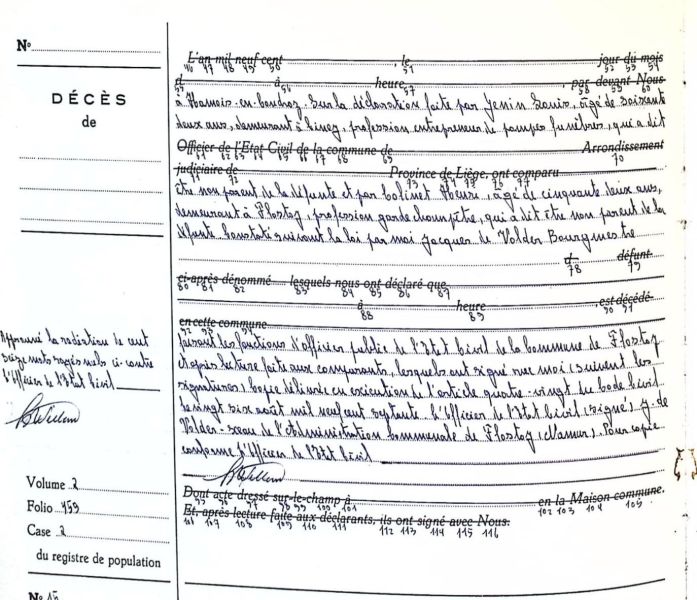 N°
DÉCÈS
de
L'an mil neuf cent , le jour du mois
46 47 48 49 50 51 52 53 54
d à heure , par devant Nous
55 56 57 58 59 60
à Hamois-en-Condroz. Sur la déclaration faite par Jenin Louis, âgé de soixante
deux ans, demeurant à Cinez, profession entrepreneur de pompes funèbres, qui a dit
Officier de l'Etat Civil de la commune de Arrondissement
61 62 63 64 65 66 67 68 69 70
judiciaire de Province de Liège, ont comparu
73 74 75 76 77
être non parent de la défunte et par Colinet Henri, âgé de cinquante deux ans,
demeurant à Flostoy, profession garde champêtre, qui a dit être non parent de la
défunte. Constaté suivant la loi par moi Jacques de Volder Bourgmestre
d défunt
78 79
ci-après dénommé lesquels nous ont déclaré que
80 81 82 83 84 85 86 87
à heure , est décédé
88 89 90 91
en cette commune
92 93 94
faisant les fonctions d'officier public de l'Etat Civil de la commune de Flostoy
et après lecture faite aux comparants, lesquels ont signé avec moi (suivent les
signatures). Copie délivrée en exécution de l'article quatre-vingt du Code Civil
le vingt six août mil neuf cent septante. L'Officier de l'Etat Civil (signé) J. de
Volder - sceau de l'Administration Communale de Flostoy (Namur). Pour copie
conforme l'Officier de l'Etat Civil
Dont acte dressé sur-le-champ à en la Maison commune.
95 96 97 98 99 100 101 102 103 104 105
Et, après lecture faite aux déclarants, ils ont signé avec Nous.
106 107 108 109 110 111 112 113 114 115 116
Approuvé la radiation de cent
seize mots rayés nuls ci-contre
l'Officier de l'Etat Civil
Volume 2
Folio 459
Case 2
du registre de population
N° 15